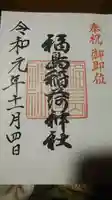 奉祝 御即位
福島稲荷神社
令和元年十一月四日